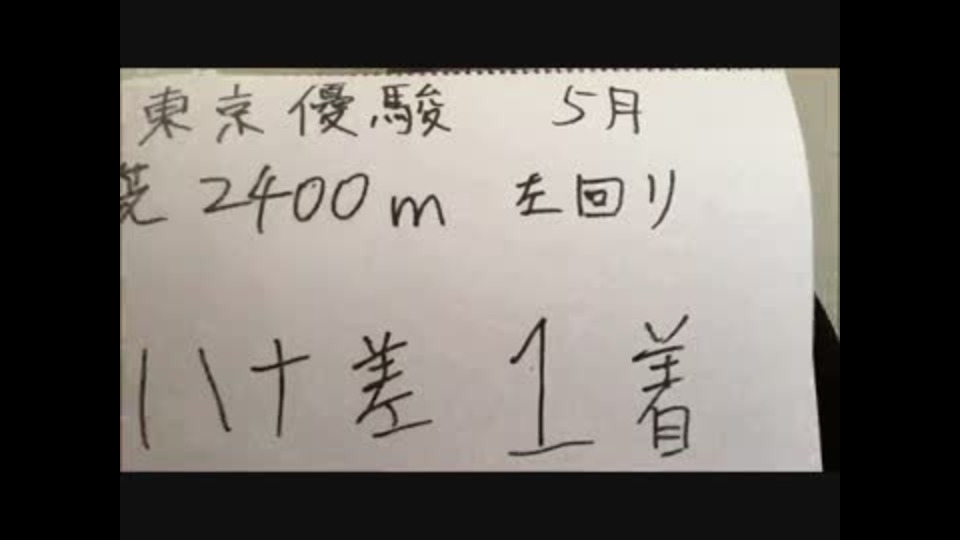 東京優駿 5月
芝 2400m 左回り
ハナ差 1着